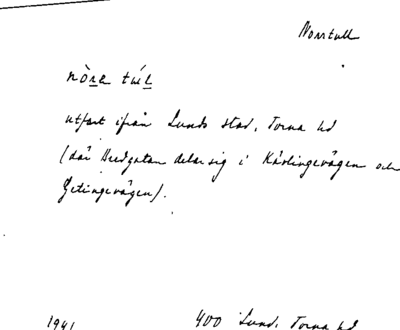 Norrtull
nòrɛ túl
utfart ifrån Lunds stad, Torna hd
(där Bredgatan delar sig i Kävlingevägen och
Getingevägen).
1941 400 Lund, Torna hd